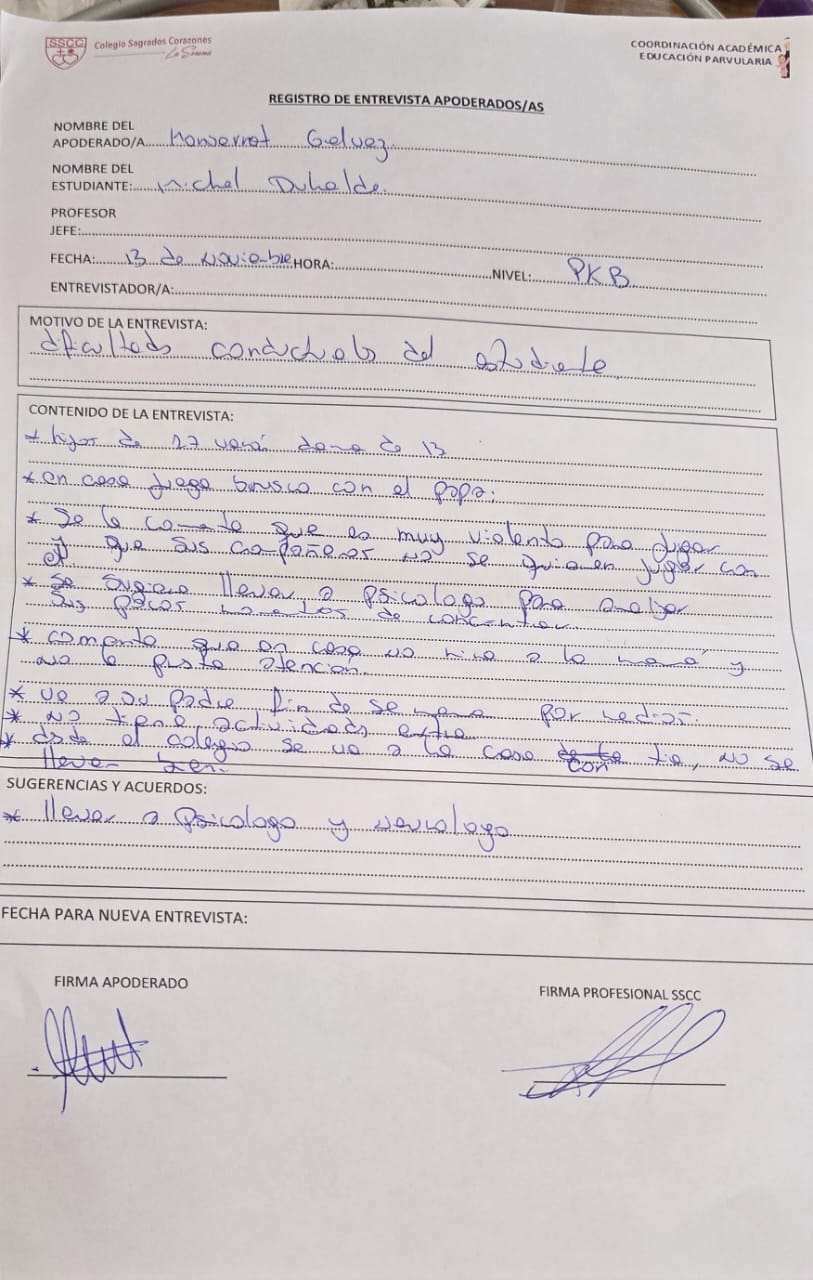 SSCC
Colegio Sagrados Corazones
La Serena
COORDINACIÓN ACADÉMICA
EDUCACIÓN PARVULARIA
REGISTRO DE ENTREVISTA APODERADOS/AS
NOMBRE DEL
APODERADO/A Monserrat Gelvez
NOMBRE DEL
ESTUDIANTE: Michel Duhalde.
PROFESOR
JEFE:
FECHA: 13 de Noviembre HORA: NIVEL: PKB
ENTREVISTADOR/A:
MOTIVO DE LA ENTREVISTA:
dificultads conductuals del estudiante
CONTENIDO DE LA ENTREVISTA:
* hijos de 27 de 13
* en casa juega brusco con el papa.
* Se le comenta que es muy violento para jugar
y que sus compañeros no se quieren juger con
el
* Se sugiere llevar a psicologo para
Sus pocos momentos de
* comenta que en casa no mira a la mamá y
no le presta atención.
* ve a su padre fin de semana por medio.
* No tiene actividads extra
* desde el colegio se va a la casa con tia, no se
llevan bien.
SUGERENCIAS Y ACUERDOS:
* llevar a Psicologo y neurologo
FECHA PARA NUEVA ENTREVISTA:
FIRMA APODERADO
FIRMA PROFESIONAL SSCC